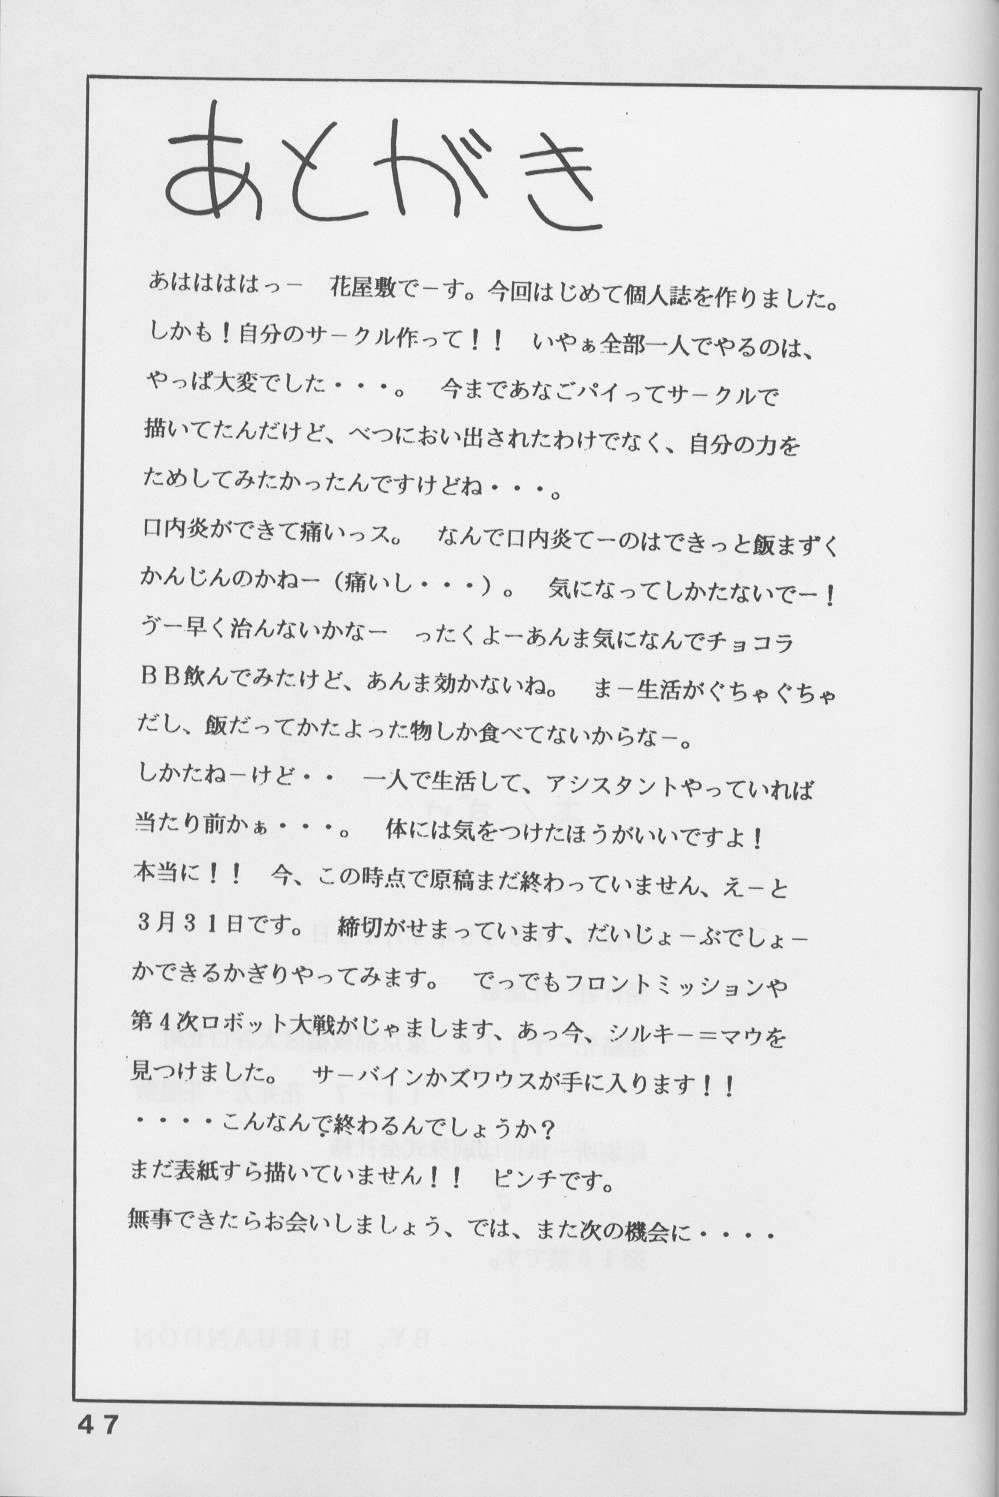 あとがき
あははははっー　花屋敷でーす。今回はじめて個人誌を作りました。
しかも！自分のサークル作って！！　いやぁ全部一人でやるのは、
やっぱ大変でした・・・。　今まであなごパイってサークルで
描いてたんだけど、べつにおい出されたわけでなく、自分の力を
ためしてみたかったんですけどね・・・。
口内炎ができて痛いっス。　なんで口内炎てーのはできっと飯まずく
かんじんのかねー（痛いし・・・）。　気になってしかたないでー！
ゔー早く治んないかなー　ったくよーあんま気になんでチョコラ
ＢＢ飲んでみたけど、あんま効かないね。　まー生活がぐちゃぐちゃ
だし、飯だってかたよった物しか食べてないからなー。
しかたねーけど・・　一人で生活して、アシスタントやっていれば
当たり前かぁ・・・。　体には気をつけたほうがいいですよ！
本当に！！　今、この時点で原稿まだ終わっていません、えーと
３月３１日です。　締切がせまっています、だいじょーぶでしょー
かできるかぎりやってみます。　でっでもフロントミッションや
第４次ロボット大戦がじゃまします、あっ今、シルキー＝マウを
見つけました。　サーバインかズワウスが手に入ります！！
・・・・こんなんで終わるんでしょうか？
まだ表紙すら描いていません！！　ピンチです。
無事できたらお会いしましょう、では、また次の機会に・・・・
４７